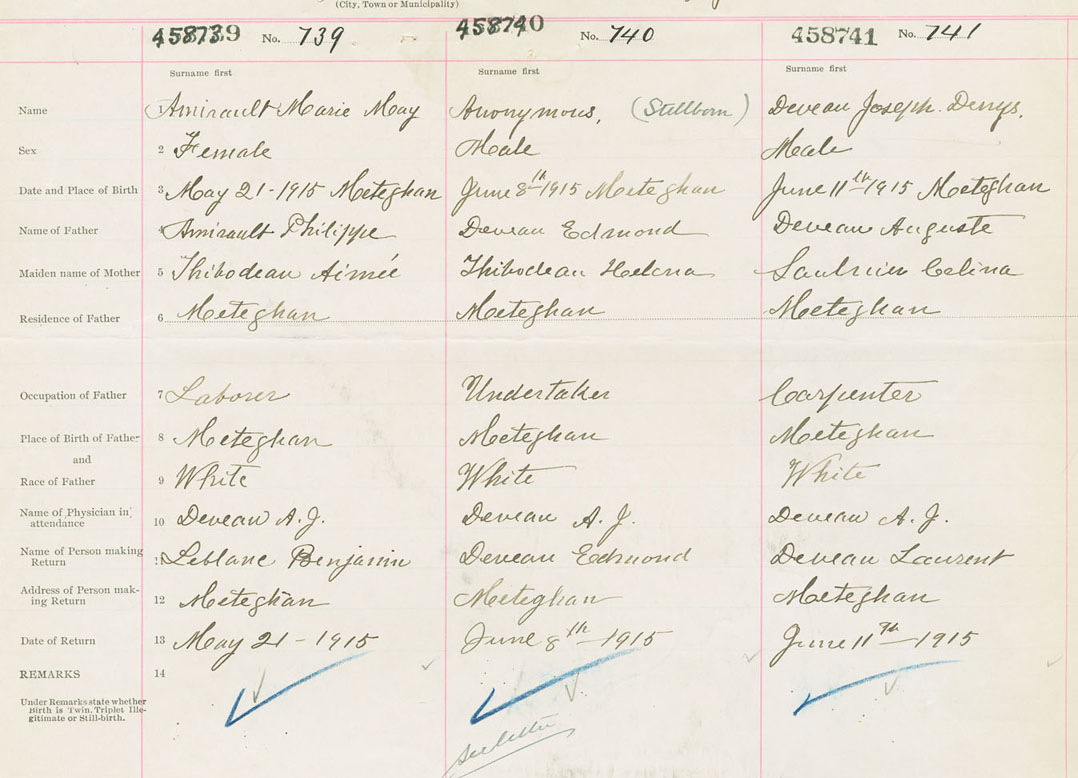 (City, Town or Municipality)
458739 No. 739 458740 No. 740 458741 No. 741
Surname first Surname first Surname first
Name 1 Amirault Marie May Anonymous, (Stillborn) Deveau Joseph Denys.
Sex 2 Female Male Male
Date and Place of Birth 3 May 21-1915 Meteghan June 8th 1915 Meteghan June 11th 1915 Meteghan
Name of Father 4 Amirault Philippe Deveau Edmond Deveau Auguste
Maiden name of Mother 5 Thibodeau Aimée Thibodeau Helena Saulnier Celina
Residence of Father 6 Meteghan Meteghan Meteghan
Occupation of Father 7 Laborer Undertaker Carpenter
Place of Birth of Father 8 Meteghan Meteghan Meteghan
and
Race of Father 9 White White White
Name of Physician in attendance 10 Deveau A. J. Deveau A. J. Deveau A. J.
Name of Person making Return 11 Leblanc Benjamin Deveau Edmond Deveau Laurent
Address of Person mak-ing Return 12 Meteghan Meteghan Meteghan
Date of Return 13 May 21 - 1915 June 8th 1915 June 11th 1915
REMARKS 14
Under Remarks state whether
Birth is Twin, Triplet Ille-
gitimate or Still-birth.
see letter